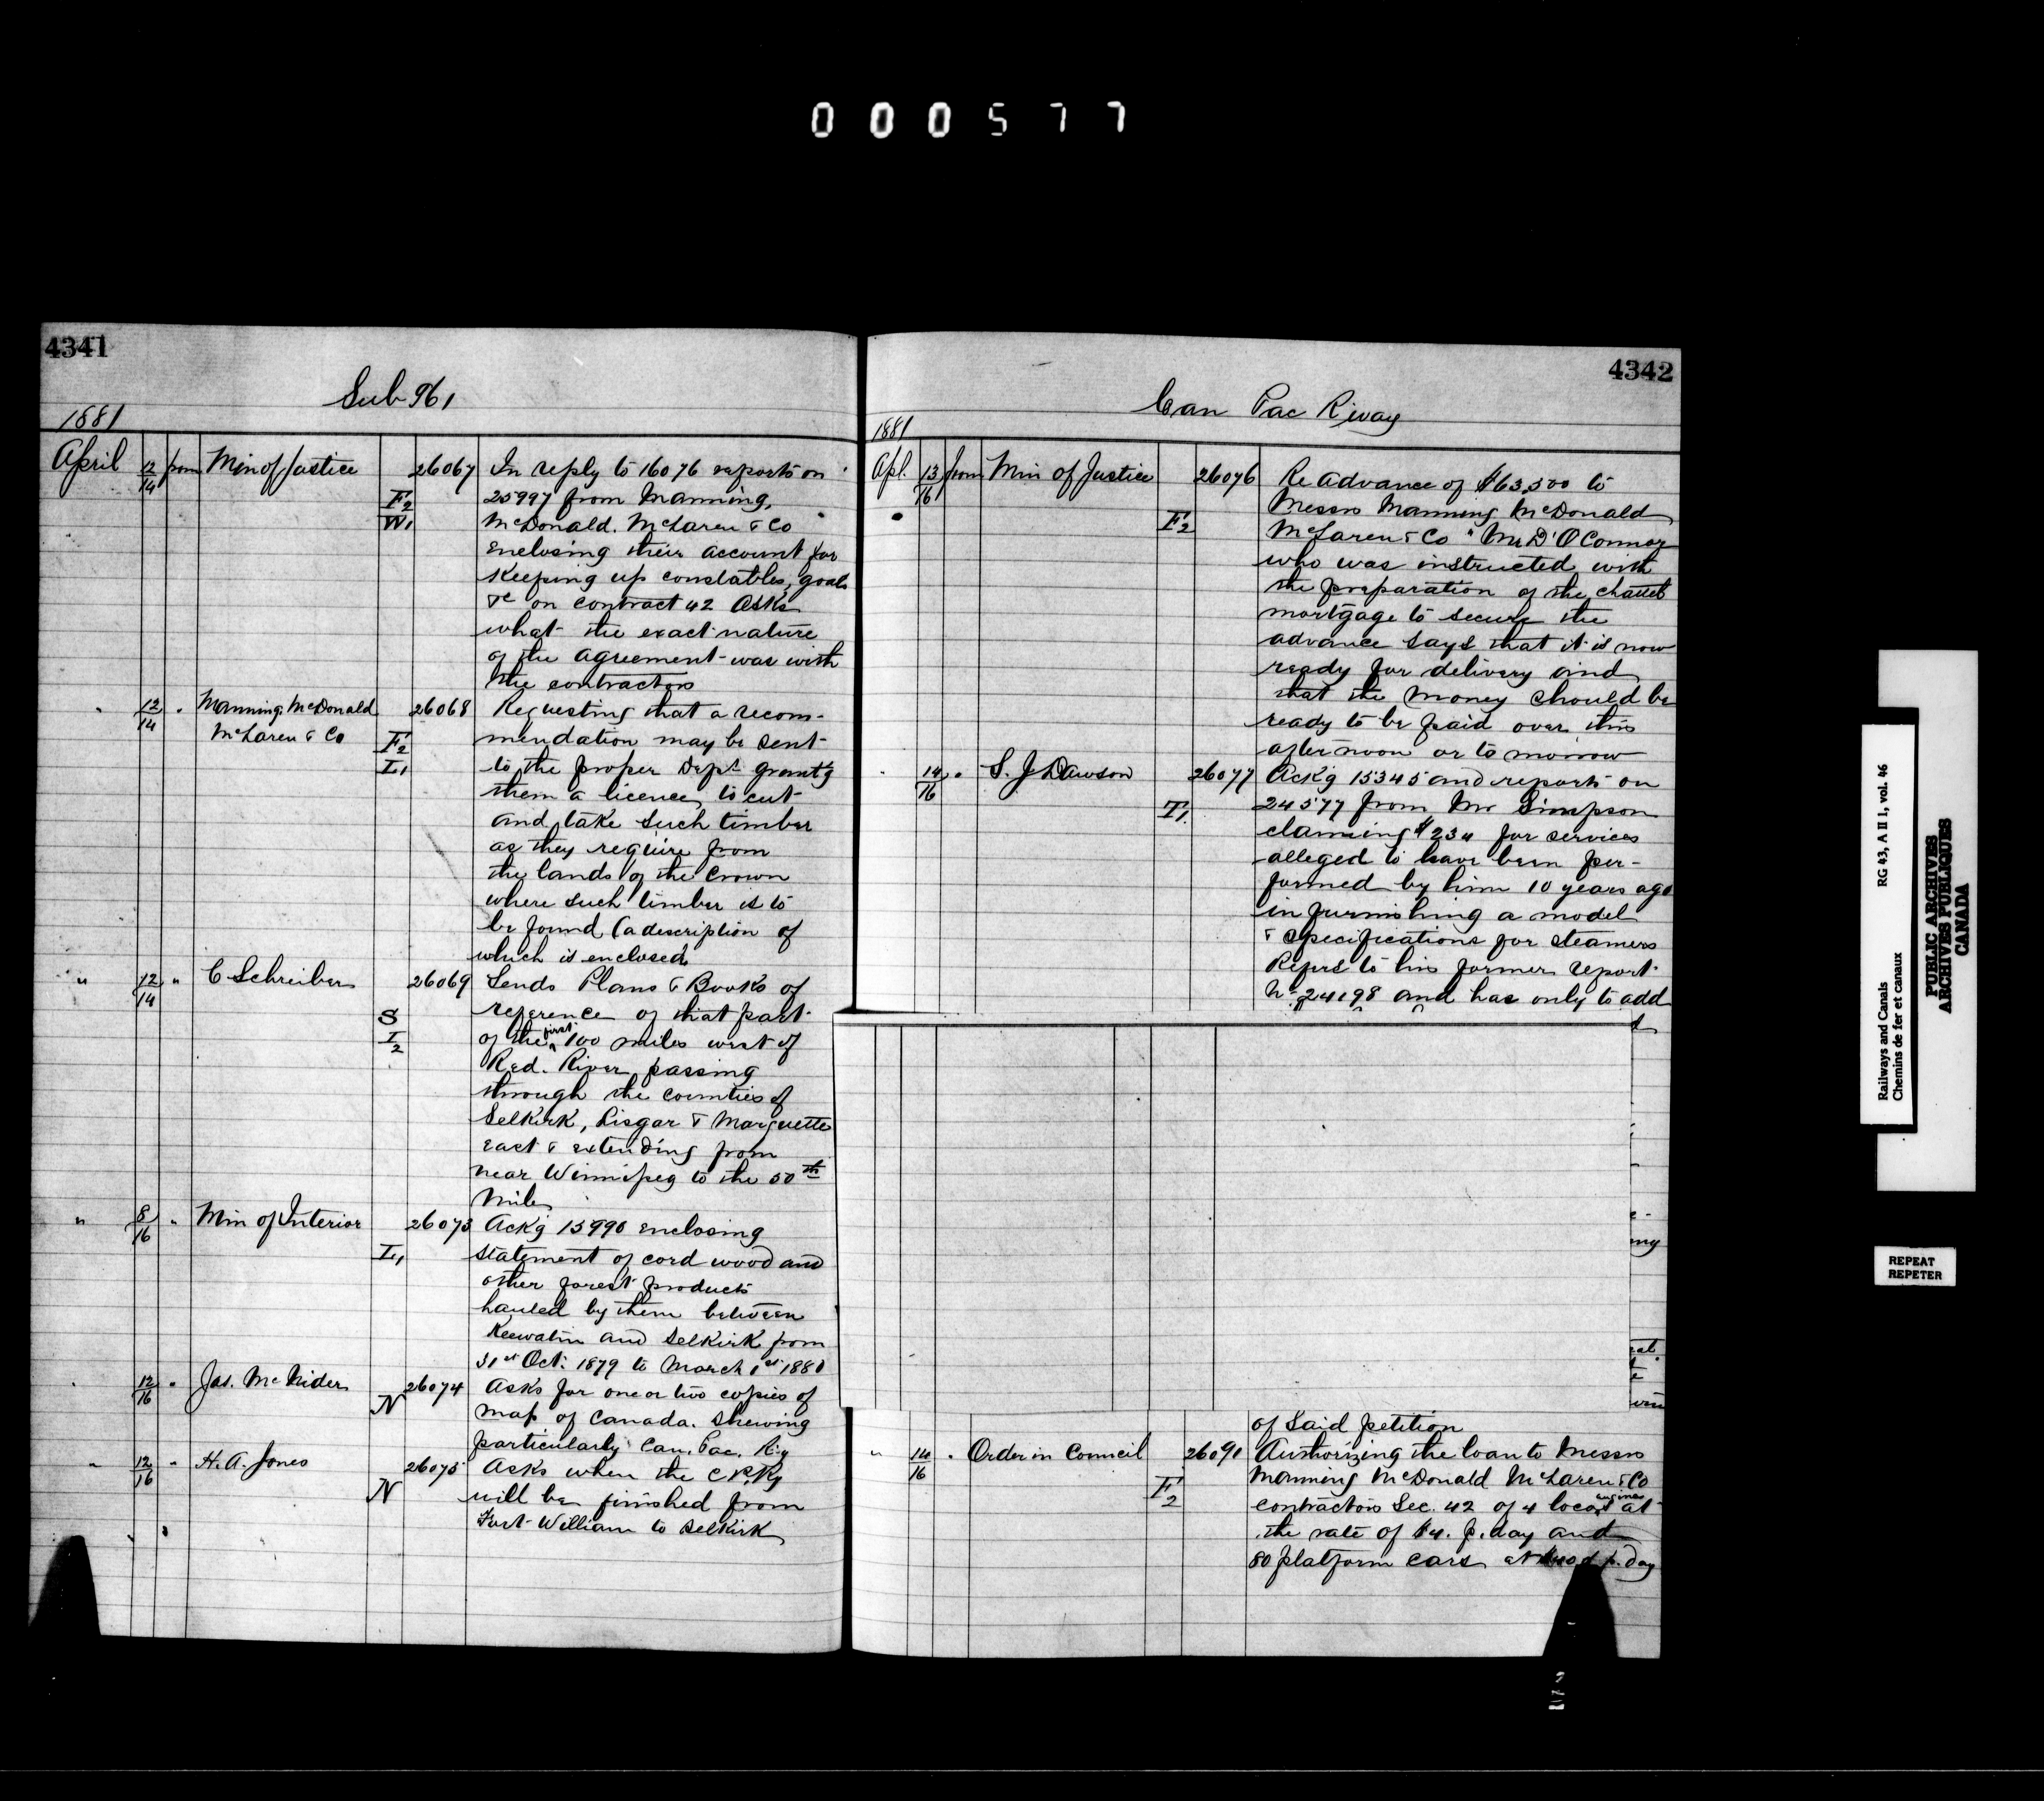 000577
4341
Sub 961
1881
April 12/14 from Min of Justice 26067 In reply to 16076 reports on
F2 25997 from Manning,
W1 McDonald. McLaren & Co
enclosing their account for
Keeping up constables, goals
&c on contract 42 Asks
what the exact nature
of the agreement was with
the contractors
" 12/14 " Manning McDonald 26068 Requesting that a recom-
McLaren & Co F2 mendation may be sent
L1 to the proper Dept grant'g
them a licence to cut
and take such timber
as they require from
the lands of the Crown
where such timber is to
be found (a description of
which is enclosed
" 12/14 " C Schreiber 26069 Sends Plans & Books of
S reference of that part
I2 of the first 100 miles west of
Red. River passing
through the counties of
Selkirk, Lisgar & Marquette
east & extending from
near Winnipeg to the 50th
mile
" 8/16 " Min of Interior 26073 Ackg 15990 enclosing
L1 statement of cord wood and
other forest products
hauled by them between
Keewatin and Selkirk from
31st Oct. 1879 to March 1st 1880
" 12/16 " Jas. McNider 26074 Asks for one or two copies of
N map of Canada. shewing
particularly Can. Pac. Ry
" 12/16 " H. A. Jones 26075 Asks when the C P. Ry
N will be finished from
Fort William to Selkirk
4342
Can Pac Rway
1881
Apl. 13/16 from Min of Justice 26076 Re advance of $63,500 to
Messrs Manning McDonald
F2 McLaren & Co " Mr D' O'Connor
who was instructed with
the preparation of the chattel
mortgage to secure the
advance says that it is now
ready for delivery and
that the money should be
ready to be paid over this
afternoon or to morrow
" 14/16 " S. J Dawson 26077 Ackg 15345 and reports on
T1. 24577 from Mr Simpson
claiming $234 for services
alleged to have been per-
formed by him 10 years ago
in furnishing a model
& specifications for steamers
Refers to his former report
No 24198 and has only to add
of said petition
" 14/16 " Order in Council 26091 Authorizing the loan to Messrs
Manning McDonald McLaren & Co
F2 contractors Sec. 42 of 4 loco engines at
the rate of $4. p. day and
80 platform cars at p. day
Railways and Canals RG 43, A II 1, vol. 46
Chemins de fer et canaux
PUBLIC ARCHIVES
ARCHIVES PUBLIQUES
CANADA
REPEAT
REPETER